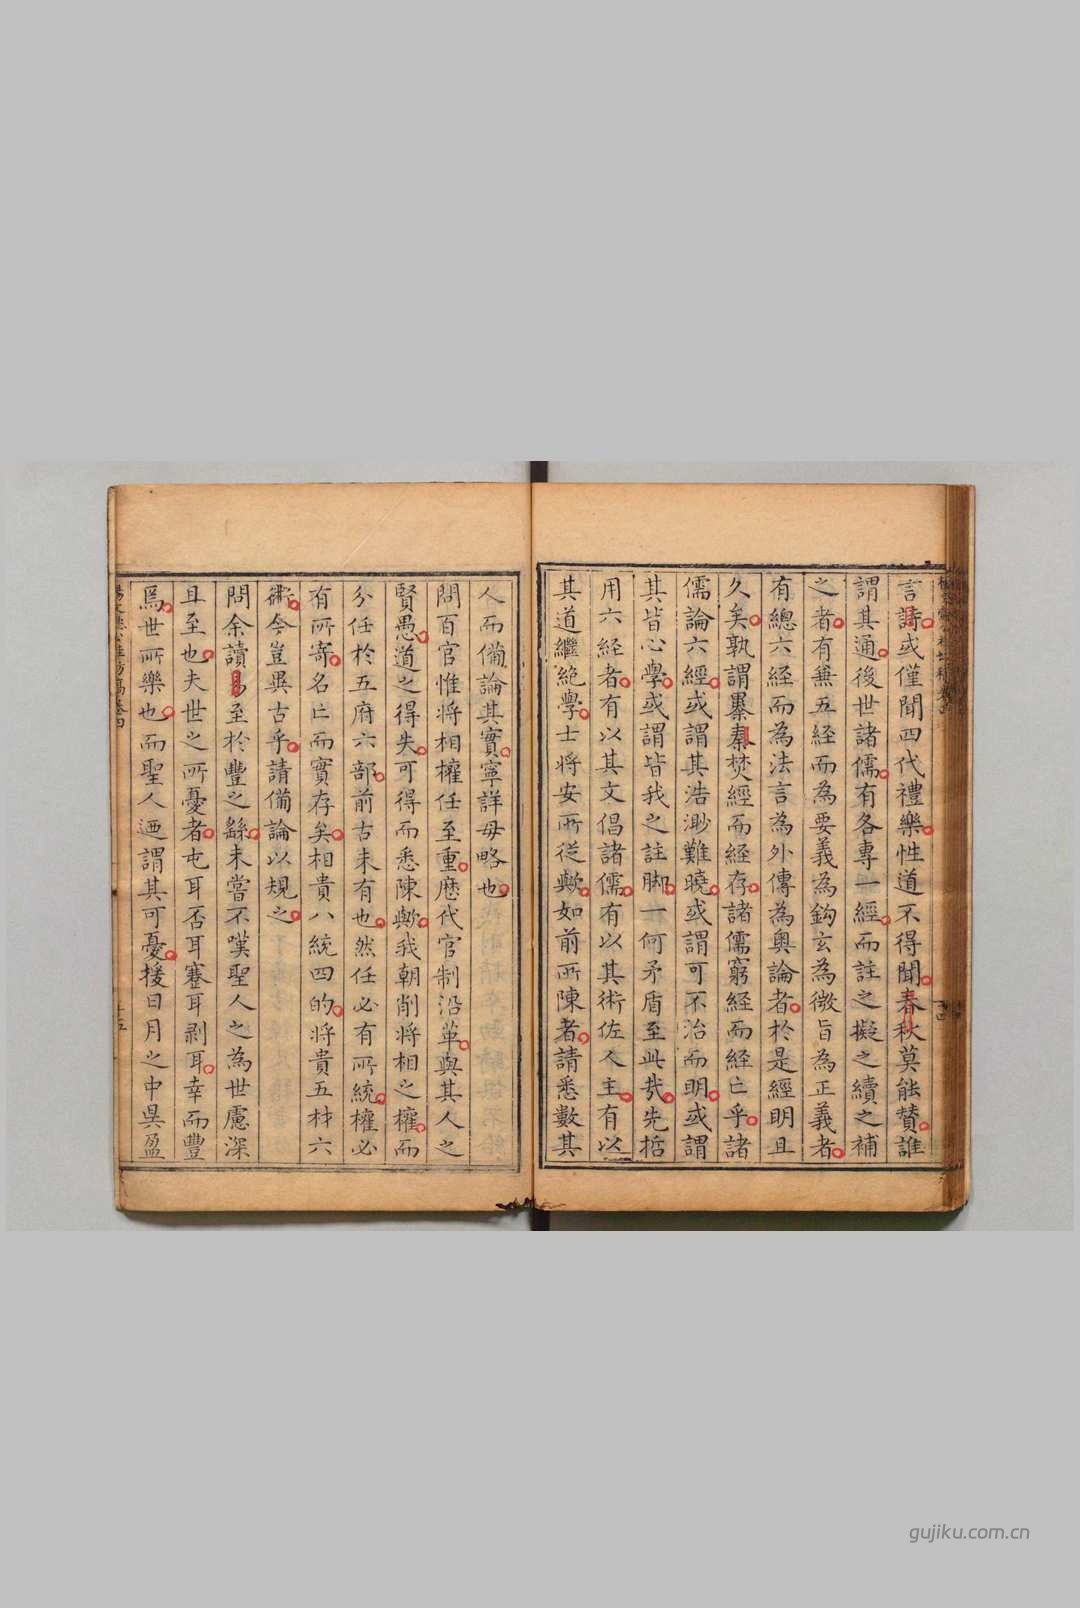 言詩或僅聞四代禮樂性道不得聞春秋莫能贊誰
謂其通後世諸儒有各專一經而註之擬之續之補
之者有兼五経而為要義為鈎玄為微旨為正義者
有總六経而為法言為外傳為奧論者於是經明且
久矣孰謂㬥秦焚經而経存諸儒窮経而経亡乎諸
儒論六經或謂其浩渺難曉或謂可不治而明或謂
其皆心學或謂皆我之註脚一何矛盾至此哉先哲
用六経者有以其文倡諸儒有以其術佐人主有以
其道繼絕學士将安所從歟如前所陳者請悉數其
人而備論其實寧詳毋略也
問百官惟将相權任至重歷代官制沿革與其人之
賢愚道之得失可得而悉陳歟我朝削将相之權而
分任於五府六部前古未有也然任必有所統權必
有所寄名亡而實存矣相貴八統四的将貴五材六
術今豈異古乎請備論以規之
問余讀易至於豐之繇未嘗不嘆聖人之為世慮深
且至也夫世之所憂者屯耳否耳蹇耳剥耳幸而豐
焉世所樂也而聖人迺謂其可憂援日月之中昃盈
十四
十五
gujiku.com.cn